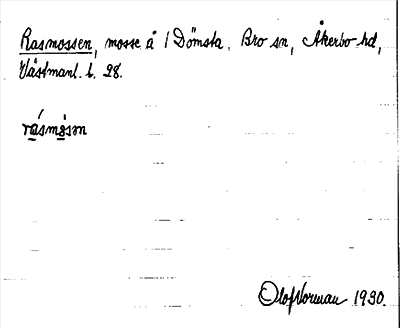 Rasmossen, mosse å 1 Dömsta. Bro sn, Åkerbo hd,
Västmanl. l. 28.
rásmåsən
Olof Norman 1930.